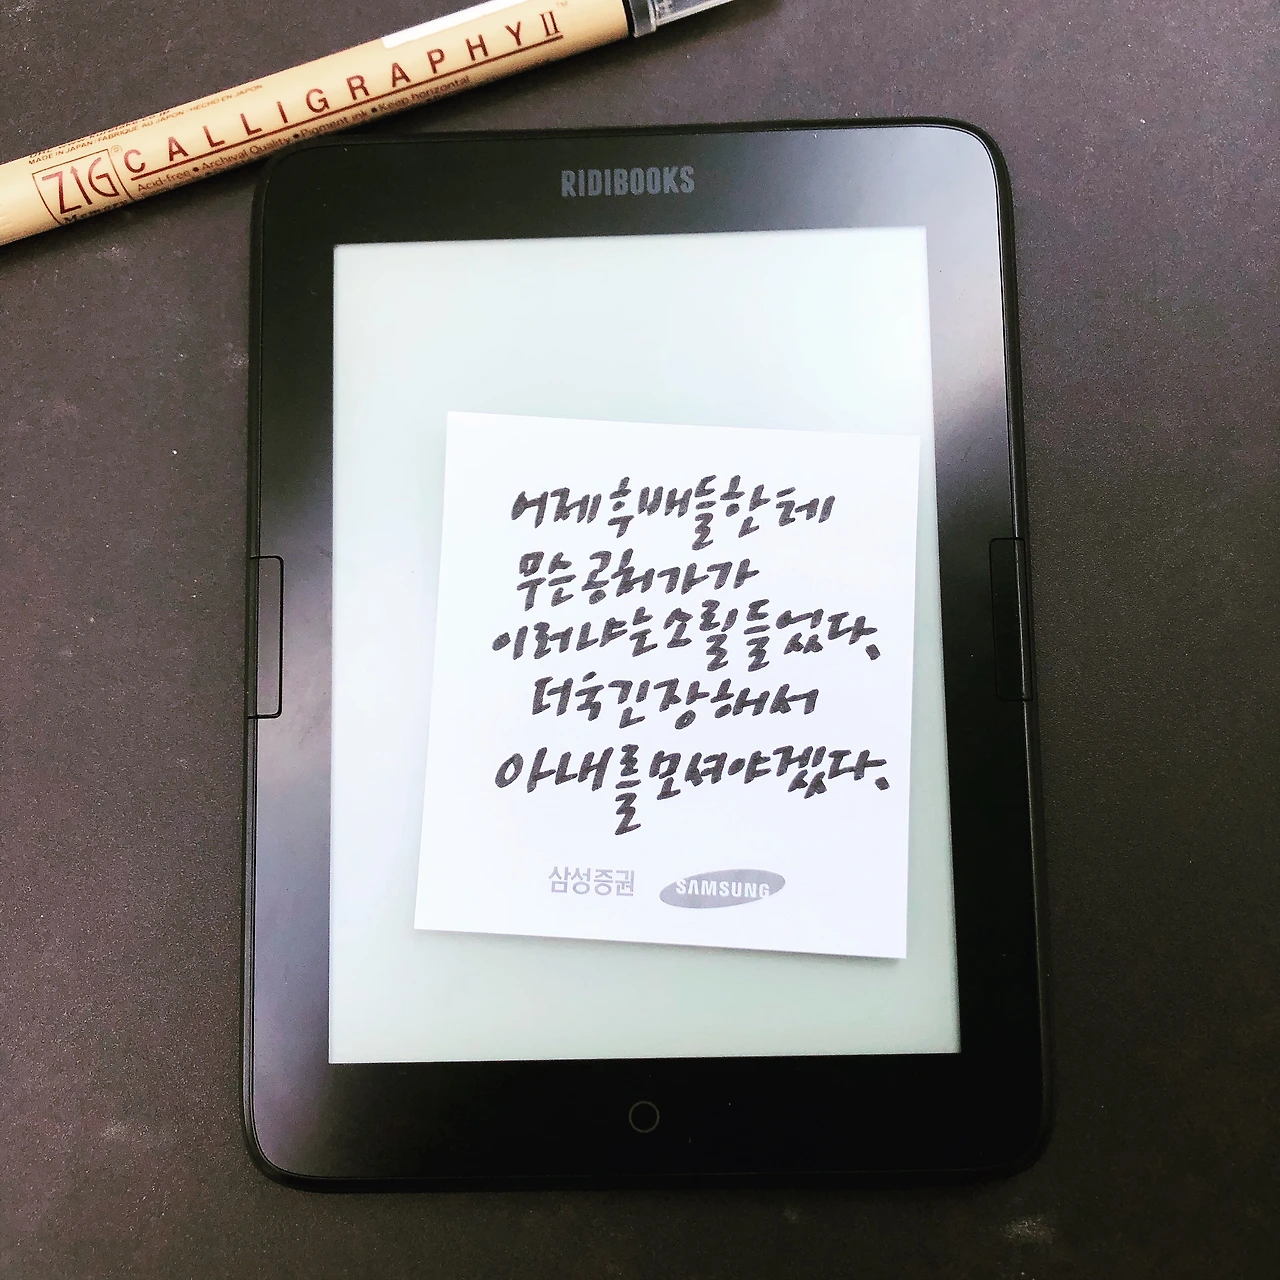 ZIG CALLIGRAPHY II™
MADE IN JAPAN · FABRIQUE AU JAPON · HECHO EN JAPON
Acid-free • Archival Quality • Pigment ink • Keep horizontal
RIDIBOOKS
어제 후배들한테
무슨 공처가가
이러냐는 소릴 들었다.
더욱 긴장해서
아내를 모셔야겠다.
삼성증권 SAMSUNG